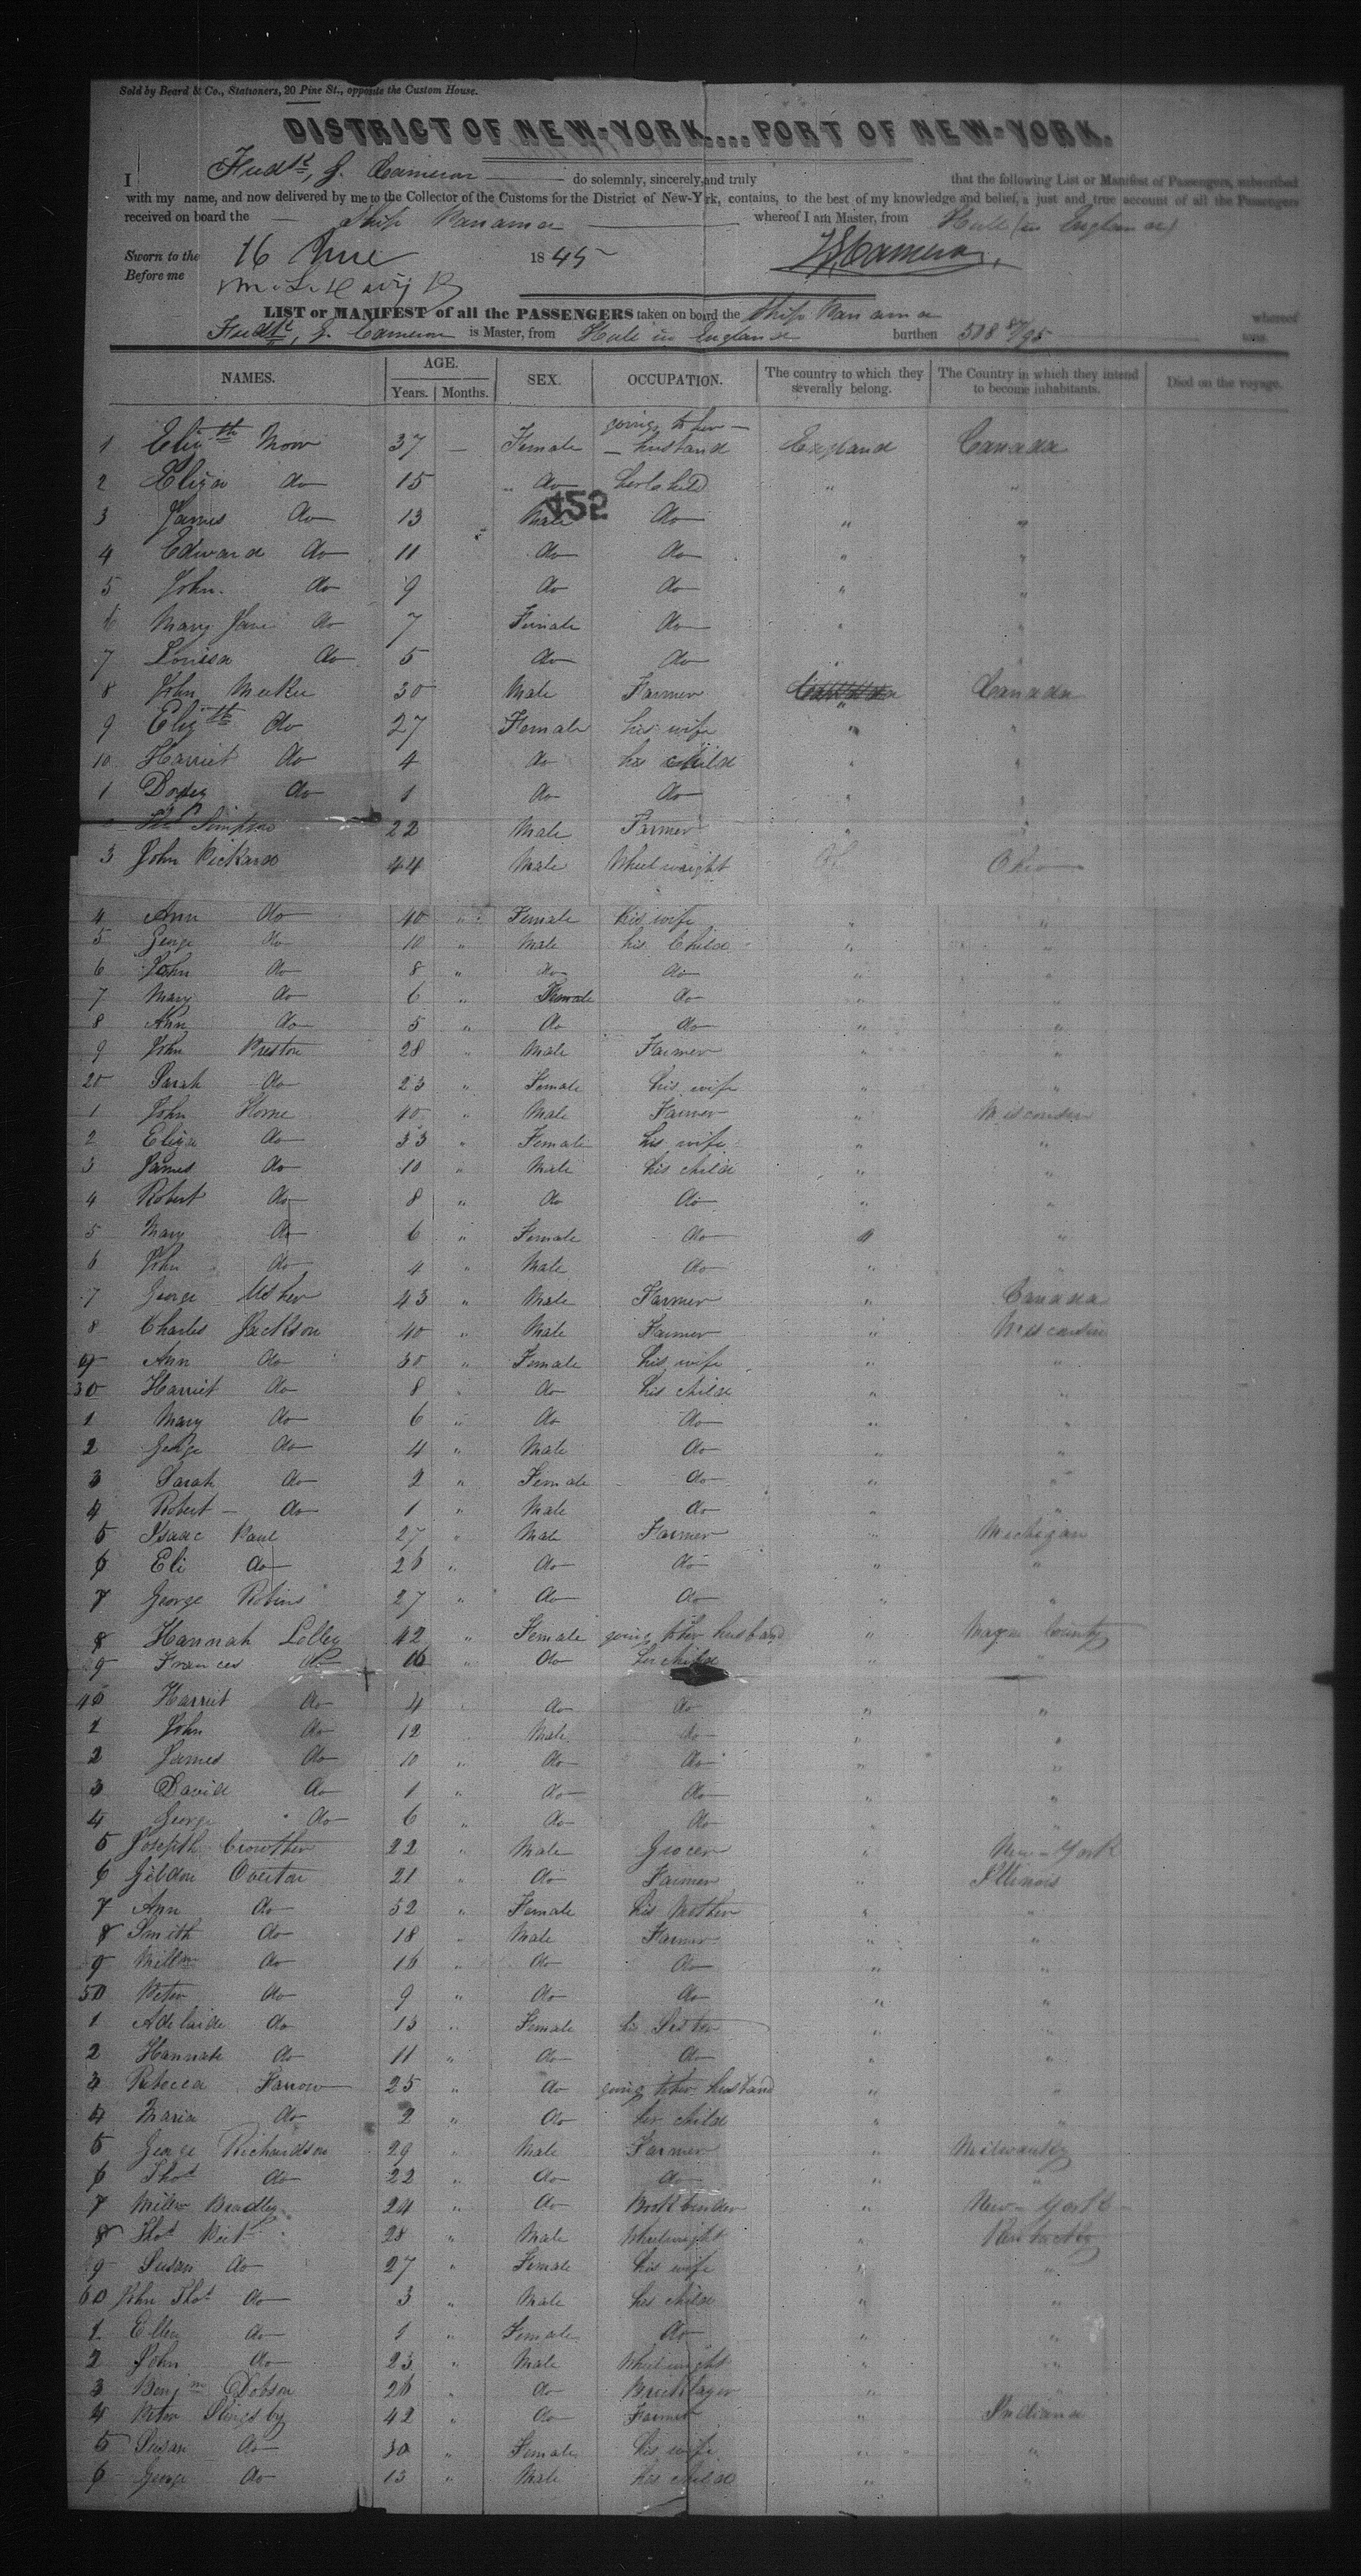 Sold by Beard & Co., Stationers, 20 Pine St., opposite the Custom House.
DISTRICT OF NEW-YORK....PORT OF NEW-YORK.
I Fredk, J. Cameron do solemnly, sincerely, and truly that the following List or Manifest of Passengers, subscribed
with my name, and now delivered by me to the Collector of the Customs for the District of New-York, contains, to the best of my knowledge and belief, a just and true account of all the Passengers
received on board the Ship Panama whereof I am Master, from Hull (in England)
Sworn to the 16 June 1845 Cameron
Before me
LIST or MANIFEST of all the PASSENGERS taken on board the Ship Panama whereof
Fredk, J. Cameron is Master, from Hull in England burthen tons.
NAMES. AGE. Years. Months. SEX. OCCUPATION. The country to which they severally belong. The Country in which they intend to become inhabitants. Died on the voyage.
1 Elizth 37 — Female going to her husband England Canada
2 Eliza do 15 " do her child " "
452
3 James do 13 Male do " "
4 Edward do 11 do do " "
5 John do 9 do do " "
6 Mary Jane do 7 Female do " "
7 Louisa do 5 do do " "
8 John 30 Male Farmer " Canada
9 Elizth do 27 Female his wife " "
10 Harriet do 4 do his child " "
1 do 1 do do " "
Simpson 22 Male Farmer " "
3 John Pickard 44 Male Wheelwright Ohio
4 Ann do 40 " Female his wife " "
5 George do 10 " Male his Child " "
6 John do 8 " do do " "
7 Mary do 6 " Female do " "
8 Ann do 5 " do do " "
9 John Preston 28 " Male Farmer " "
20 Sarah do 23 " Female his wife " "
1 John Horne 40 " Male Farmer " Wisconsin
2 Eliza do 33 " Female his wife " "
3 James do 10 " Male his child " "
4 Robert do 8 " do do " "
5 Mary do 6 " Female do " "
6 John do 4 " Male do " "
7 George Usher 43 " Male Farmer " Canada
8 Charles Jackson 40 " Male Farmer " Wisconsin
9 Ann do 30 " Female his wife " "
30 Harriet do 8 " do his child " "
1 Mary do 6 " do do " "
2 George do 4 " Male do " "
3 Sarah do 2 " Female do " "
4 Robert do 1 " Male do " "
5 Isaac Paul 27 " Male Farmer " Michigan
6 Eli do 26 " do do " "
7 George Robins 27 " do do " "
8 Hannah Lelley 42 " Female going to her husband " Wayne County
9 Frances do 16 " do her child " "
40 Harriet do 4 do do " "
1 John do 12 Male do " "
2 James do 10 " do do " "
3 David do 1 " do do " "
4 George do 6 " do do " "
5 Joseph Crowther 22 " Male Grocer " New-York
6 Overton 21 " do Farmer " Illinois
7 Ann do 52 " Female his Mother " "
8 Smith do 18 " Male Farmer " "
9 Willm do 16 " do do " "
50 Peter do 9 " do do " "
1 Adelaide do 13 " Female his Sister " "
2 Hannah do 11 " do do " "
3 Rebecca Farrow 25 " do going to her husband " "
4 Maria do 2 " do her child " "
5 George Richardson 29 " Male Farmer " Milwauky
6 Thos do 22 " do do " "
7 Willm Bradley 24 " do Bookbinder " New-York
8 Thos 28 " Male Wheelwright " Kentucky
9 Susan do 27 " Female his wife " "
60 John Thos do 3 " Male his child " "
1 Ellen do 1 " Female do " "
2 John do 23 " Male Wheelwright " "
3 Benjm Dobson 26 " do Bricklayer " "
4 Peter Slingsby 42 " do Farmer " Indiana
5 Susan do 30 " Female his wife " "
6 George do 13 " Male his child " "